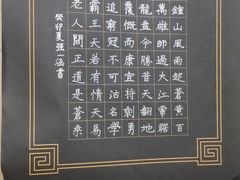 鐘山風雨起蒼黃百
萬雄師過大江虎踞
龍盤今勝昔天翻地
覆慨而慷宜將剩勇
追窮寇不可沽名學
霸王天若有情天易
老人間正道是蒼桑
癸卯夏強一涵書